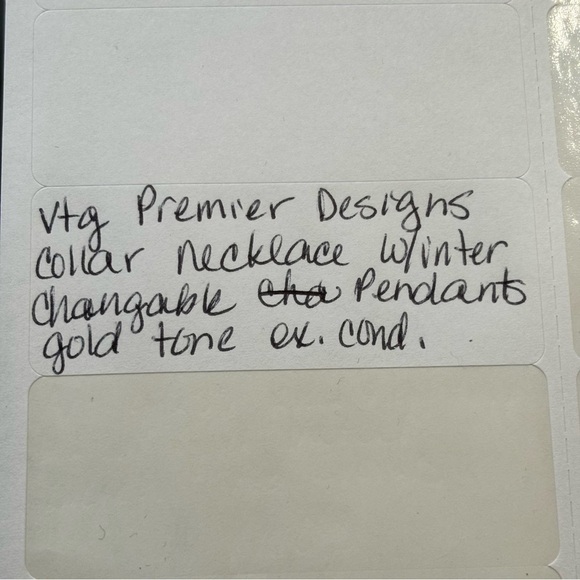 Vtg Premier Designs
Collar necklace w/inter
changable cha Pendants
gold tone ex. cond.